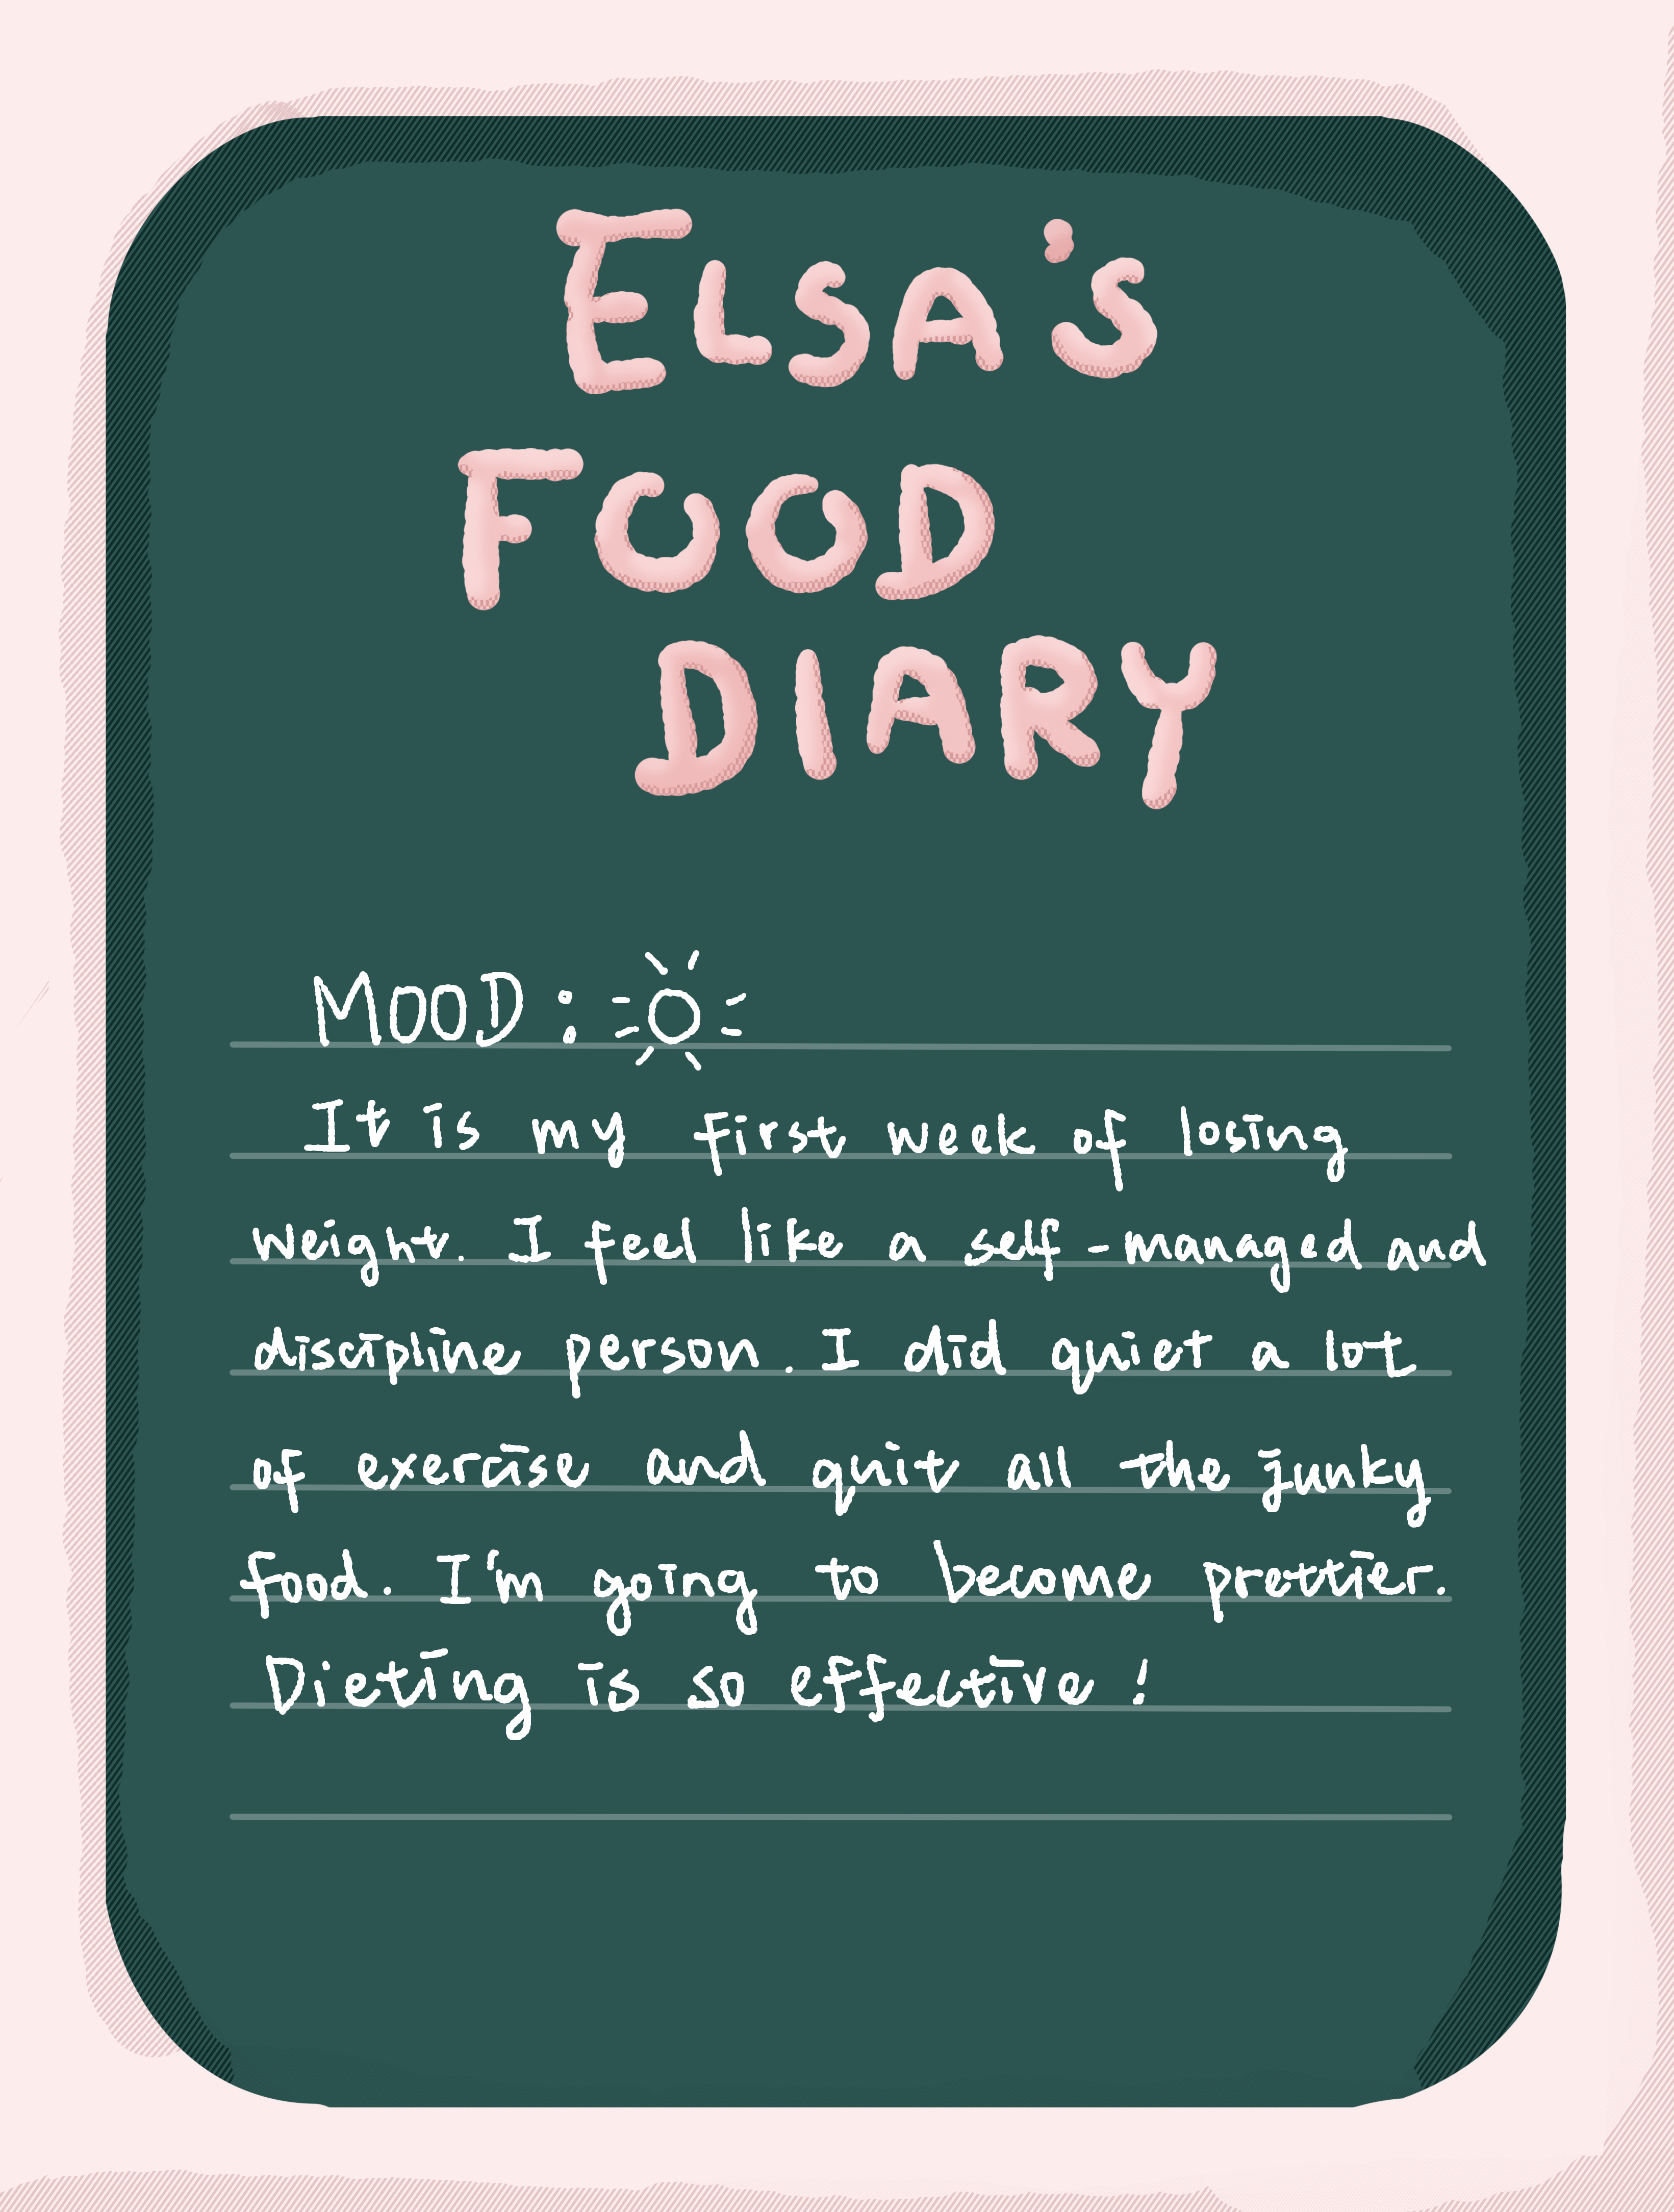 ELSA'S
FOOD
DIARY
MOOD:
It is my first week of losing
weight. I feel like a self-managed and
discipline person. I did quiet a lot
of exercise and quit all the junky
food. I'm going to become prettier.
Dieting is so effective!